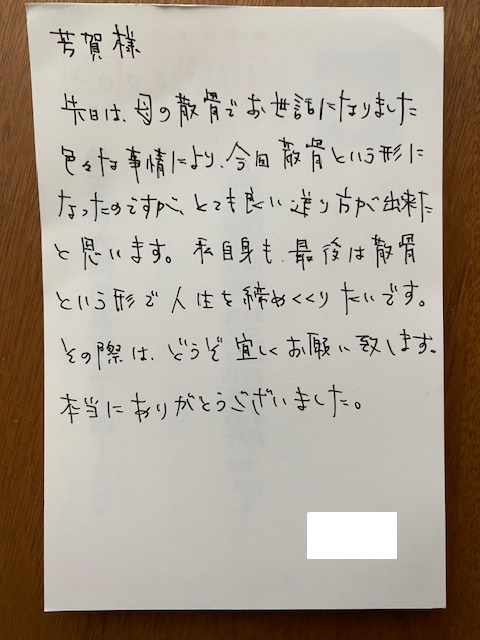 芳賀様
先日は、母の散骨でお世話になりました
色々な事情により、今回散骨という形に
なったのですが、とても良い送り方が出来た
と思います。私自身も、最後は散骨
という形で人生を締めくくりたいです。
その際は、どうぞ宜しくお願い致します。
本当にありがとうございました。